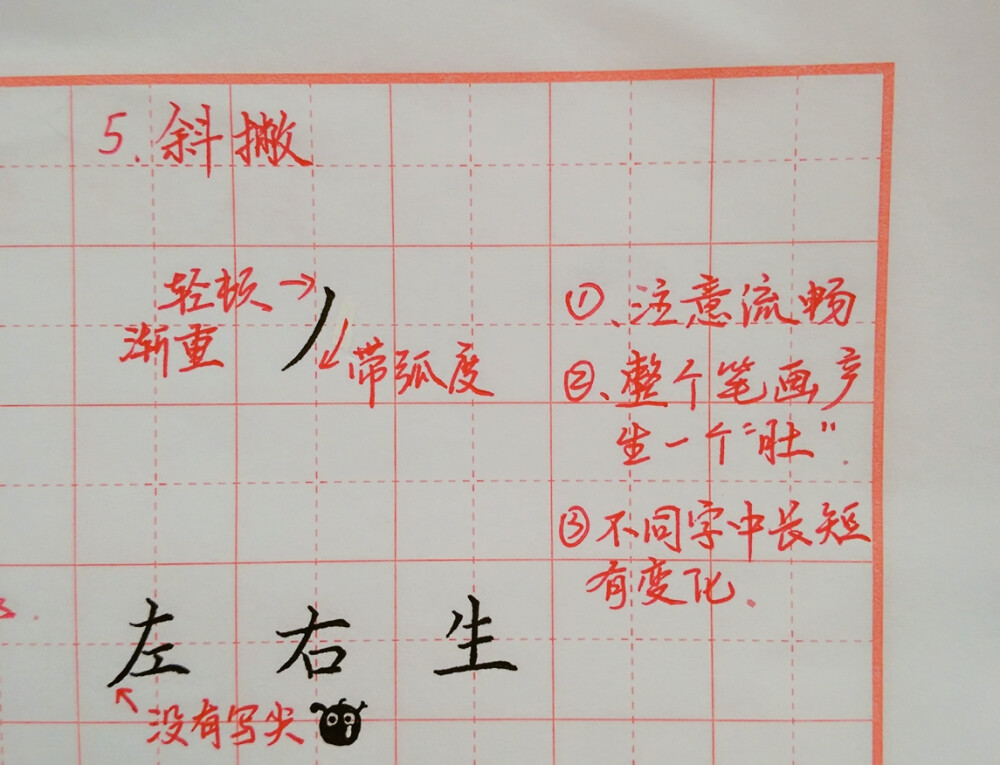 5.斜撇
轻顿→
渐重
带弧度
①、注意流畅
②、整个笔画产
生一个“肚”.
③不同字中长短
有变化.
左 右 生
没有写尖